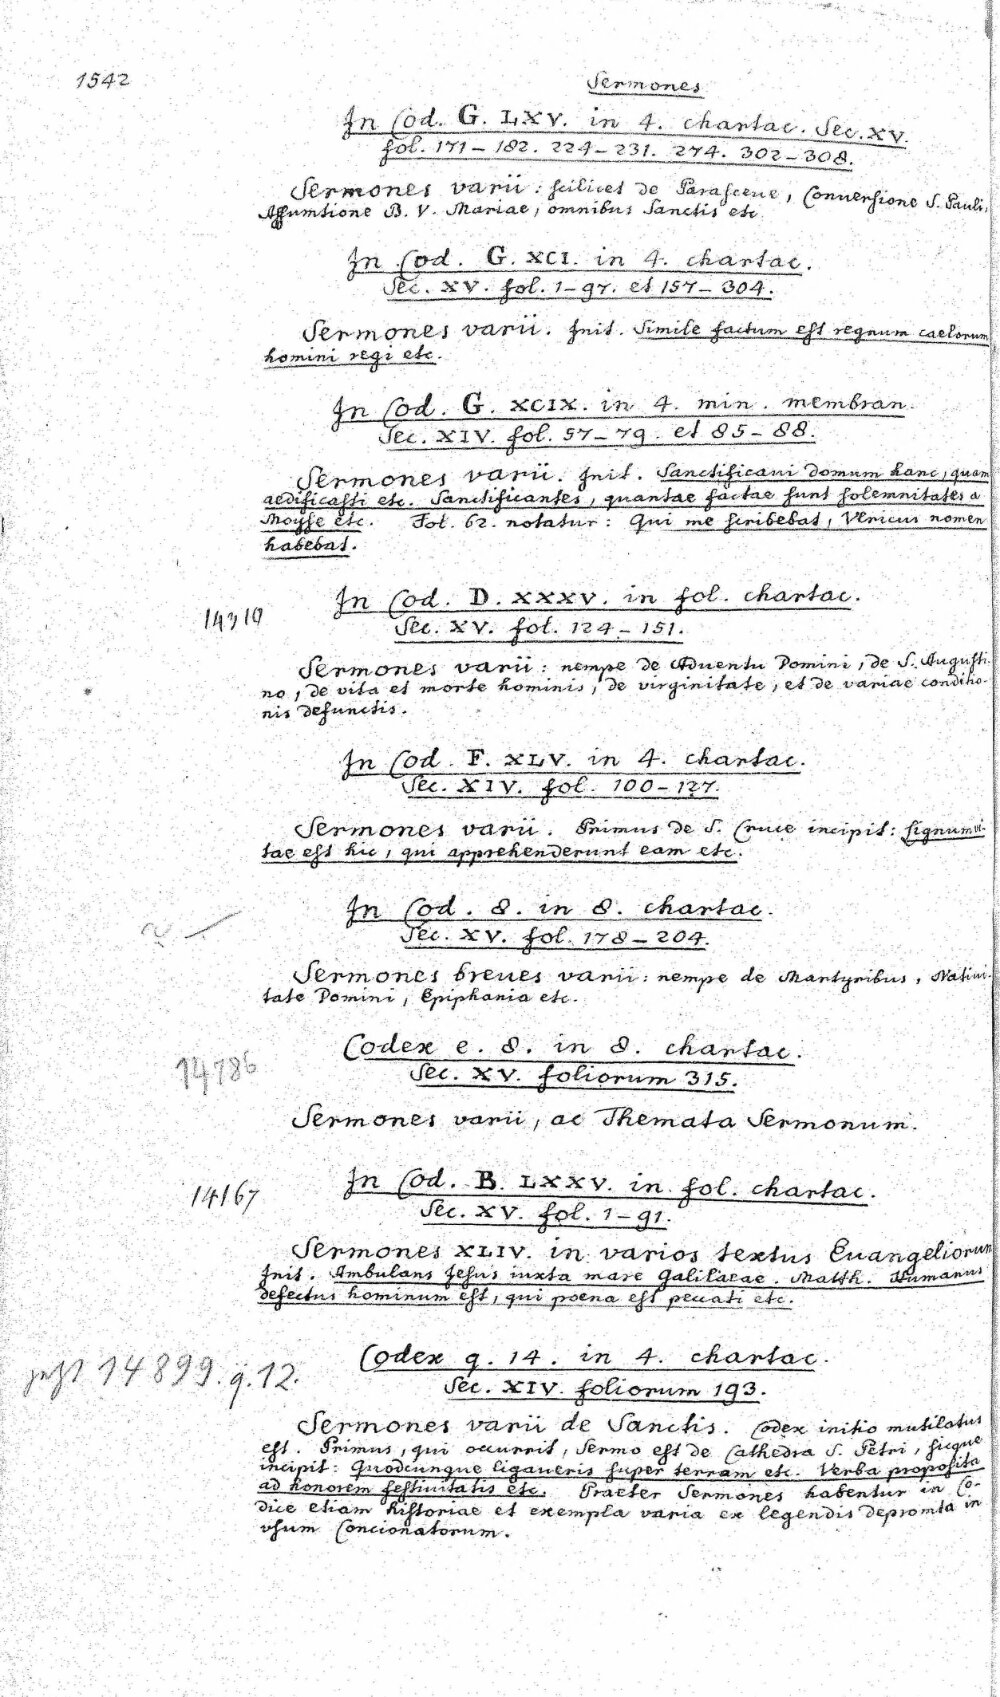 1542
Sermones
In Cod. G. LXV. in 4. chartac. Sec. XV.
fol. 171 – 182. 224 – 231. 274. 302 – 308.
Sermones varii : scilicet de Parasceue, Conuersione S. Pauli,
Assumtione B. V. Mariae, omnibus Sanctis etc.
In Cod. G. XCI. in 4. chartac.
Sec. XV. fol. 1 – 97. et 157 – 304.
Sermones varii. Init. Simile factum est regnum caelorum
homini regi etc.
In Cod. G. XCIX. in 4. min. membran.
Sec. XIV. fol. 57 – 79. et 85 – 88.
Sermones varii. Init. Sanctificaui domum hanc, quam
aedificasti etc. Sanctificantes, quantae factae sunt solemnitates a
Moyse etc. Fol. 62. notatur : Qui me scribebat, Vlricus nomen
habebat.
14319
In Cod. D. XXXV. in fol. chartac.
Sec. XV. fol. 124 – 151.
Sermones varii : nempe de Aduentu Domini, de S. Augusti-
no, de vita et morte hominis, de virginitate, et de variae conditio-
nis defunctis.
In Cod. F. XLV. in 4. chartac.
Sec. XIV. fol. 100 – 127.
Sermones varii. Primus de S. Cruce incipit : Signum vi-
tae est hic, qui apprehenderunt eam etc.
In Cod. 8. in 8. chartac.
Sec. XV. fol. 178 – 204.
Sermones breues varii : nempe de Martyribus, Natiui-
tate Domini, Epiphania etc.
14786
Codex e. 8. in 8. chartac.
Sec. XV. foliorum 315.
Sermones varii, ac Themata Sermonum.
14167
In Cod. B. LXXV. in fol. chartac.
Sec. XV. fol. 1 – 91.
Sermones XLIV. in varios textus Euangeliorum
Init. Ambulans Jesus iuxta mare Galilaeae. Matth. Humanus
defectus hominum est, qui poena est peccati etc.
jetzt 14899. q. 12.
Codex q. 14. in 4. chartac.
Sec. XIV. foliorum 193.
Sermones varii de Sanctis. Codex initio mutilatus
est. Primus, qui occurrit, Sermo est de Cathedra S. Petri, sicque
incipit : Quodcunque ligaueris super terram etc. Verba proposita
ad honorem festiuitatis etc. Praeter Sermones habentur in Co-
dice etiam historiae et exempla varia ex legendis depromta in
vsum Concionatorum.